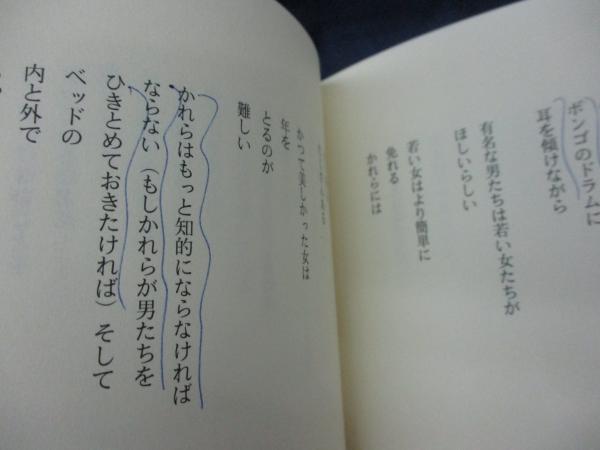 ボンゴのドラムに
耳を傾けながら
有名な男たちは若い女たちが
ほしいらしい
若い女はより簡単に
免れる
かれらには
かつて美しかった女は
年を
とるのが
難しい
かれらはもっと知的にならなければ
ならない(もしかれらが男たちを
ひきとめておきたければ)そして
ベッドの
内と外で